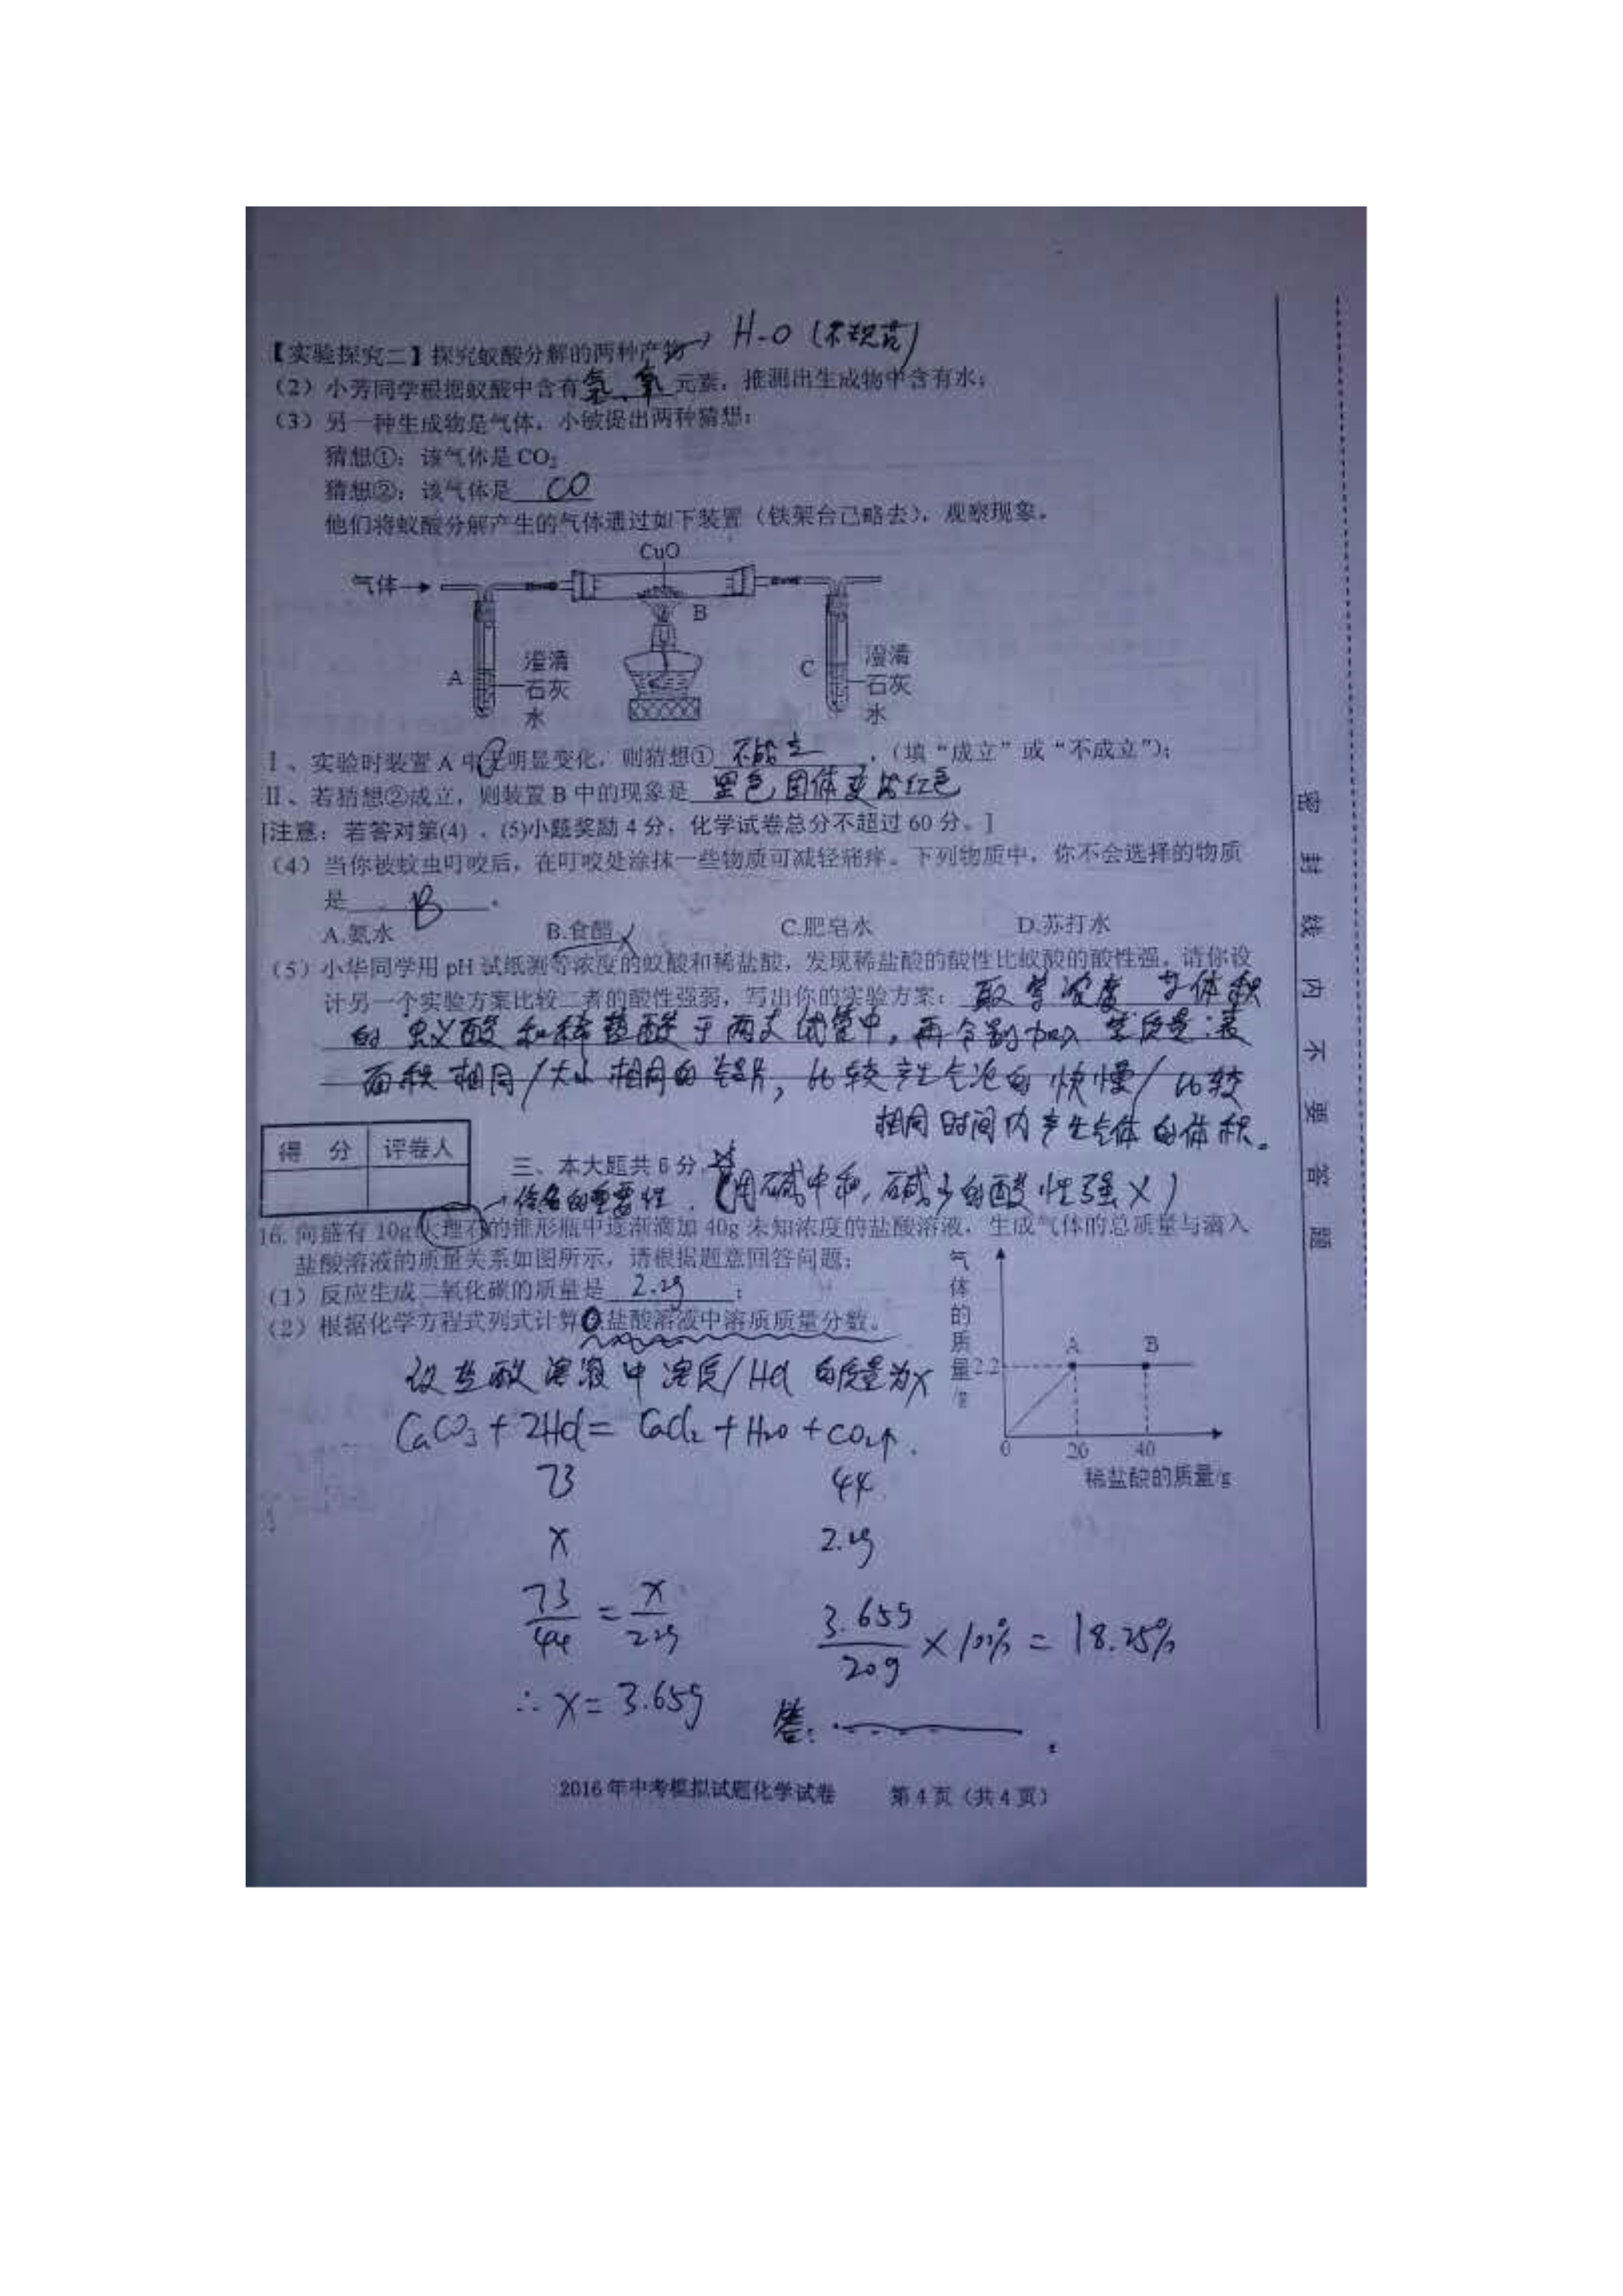 H-O (不规范)
【实验探究二】探究蚁酸分解的两种产物
(2)小芳同学根据蚁酸中含有氢、氧元素,推测出生成物中含有水;
(3)另一种生成物是气体,小敏提出两种猜想:
猜想①:该气体是CO₂
猜想②:该气体是 CO
他们将蚁酸分解产生的气体通过如下装置(铁架台已略去),观察现象。
CuO
气体
B
A
澄清
石灰
水
C
澄清
石灰
水
Ⅰ、实验时装置A中无明显变化,则猜想① 不成立 。(填“成立”或“不成立”);
Ⅱ、若猜想②成立,则装置B中的现象是 黑色固体变为红色
[注意:若答对第(4)、(5)小题奖励4分,化学试卷总分不超过60分。]
(4)当你被蚊虫叮咬后,在叮咬处涂抹一些物质可减轻痛痒。下列物质中,你不会选择的物质
是 B 。
A.氨水 B.食醋 C.肥皂水 D.苏打水
(5)小华同学用pH试纸测等浓度的蚁酸和稀盐酸,发现稀盐酸的酸性比蚁酸的酸性强。请你设
计另一个实验方案比较二者的酸性强弱,写出你的实验方案: 取等浓度 等体积
的蚁酸和稀盐酸于两支试管中,再分别加入等质量;表
面积相同/大小相同的铝片,比较产生气泡的快慢/比较
相同时间内产生气体的体积。
得 分 评卷人
三、本大题共6分
(用碱中和,碱多的酸性强X)
→俗名的重要性.
16.向盛有10g大理石的锥形瓶中逐渐滴加40g未知浓度的盐酸溶液,生成气体的总质量与滴入
盐酸溶液的质量关系如图所示,请根据题意回答问题:
(1)反应生成二氧化碳的质量是 2.2g ;
(2)根据化学方程式列式计算盐酸溶液中溶质质量分数。
气体的质量/g
2.2
A
B
0
20
40
稀盐酸的质量/g
设盐酸溶液中溶质/HCl的质量为x
CaCO₃+2HCl=CaCl₂+H₂O+CO₂↑.
73 44
x 2.2g
73/44 = x/2.2g
3.65g/20g ×100% = 18.25%
∴x=3.65g
答:
2016年中考模拟试题化学试卷 第4页(共4页)
密封线内不要答题